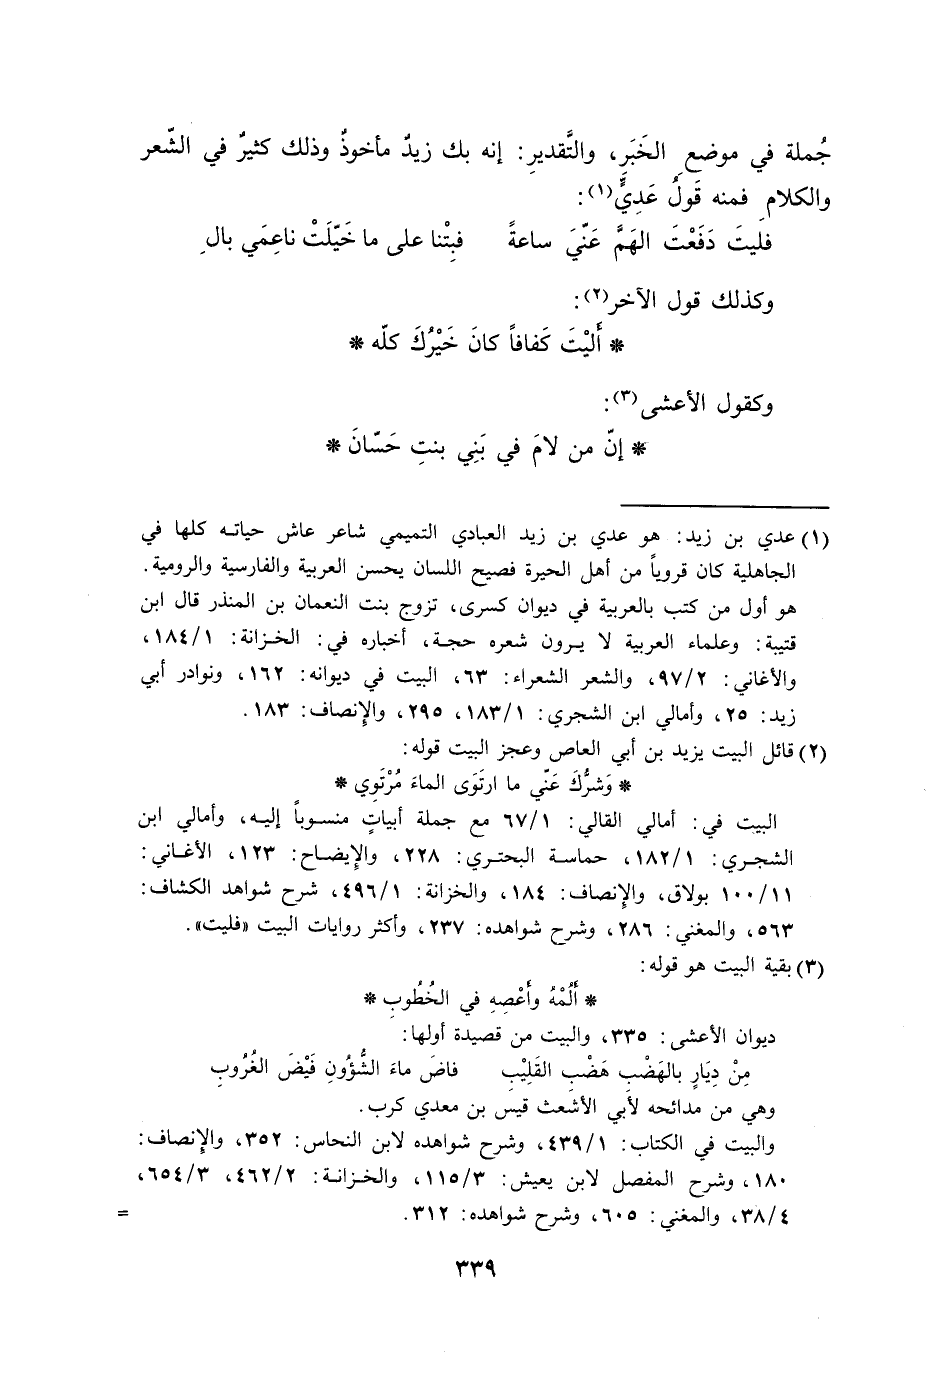 جُملة في موضعِ الخَبَرِ، والتَّقديرِ: إنه بك زيدٌ مأخوذٌ وذلك كثيرٌ في الشّعر
والكلامِ فمنه قَولُ عَدِيٍّ(١):
فليتَ دَفَعْتَ الهَمَّ عَنّيَ ساعةً فبِتْنا على ما خَيّلَتْ ناعِمَي بالِ
وكذلك قول الآخر(٢):
* أَليْتَ كَفافاً كانَ خَيْرُكَ كلّه *
وكقول الأعشى(٣):
* إنّ من لامَ في بَنِي بنتِ حَسّانَ *
(١) عدي بن زيد: هو عدي بن زيد العبادي التميمي شاعر عاش حياته كلها في
الجاهلية كان قروياً من أهل الحيرة فصيح اللسان يحسن العربية والفارسية والرومية.
هو أول من كتب بالعربية في ديوان كسرى، تزوج بنت النعمان بن المنذر قال ابن
قتيبة: وعلماء العربية لا يرون شعره حجة، أخباره في: الخزانة: ١٨٤/١،
والأغاني: ٩٧/٢، والشعر الشعراء: ٦٣، البيت في ديوانه: ١٦٢، ونوادر أبي
زيد: ٢٥، وأمالي ابن الشجري: ١٨٣/١، ٢٩٥، والإنصاف: ١٨٣.
(٢) قائل البيت يزيد بن أبي العاص وعجز البيت قوله:
* وَشرُّكَ عَنّي ما ارتَوَى الماءَ مُرْتَوِي *
البيت في: أمالي القالي: ٦٧/١ مع جملة أبياتٍ منسوباً إليه، وأمالي ابن
الشجري: ١٨٢/١، حماسة البحتري: ٢٢٨، والإيضاح: ١٢٣، الأغاني:
١٠٠/١١ بولاق، والإنصاف: ١٨٤، والخزانة: ٤٩٦/١، شرح شواهد الكشاف:
٥٦٣، والمغني: ٢٨٦، وشرح شواهده: ٢٣٧، وأكثر روايات البيت «فليت».
(٣) بقية البيت هو قوله:
* أَلُمْهُ وأَعْصِهِ في الخُطُوبِ *
ديوان الأعشى: ٣٣٥، والبيت من قصيدة أولها:
مِنْ دِيَارٍ بالهَضْبِ هَضْبِ القَلِيْبِ فاضَ ماءَ الشُّؤونِ فَيْضَ الغُرُوبِ
وهي من مدائحه لأبي الأشعث قيس بن معدي كرب.
والبيت في الكتاب: ٤٣٩/١، وشرح شواهده لابن النحاس: ٣٥٢، والإنصاف:
١٨٠، وشرح المفصل لابن يعيش: ١١٥/٣، والخزانة: ٤٦٢/٢، ٦٥٤/٣،
٣٨/٤، والمغني: ٦٠٥، وشرح شواهده: ٣١٢. =
٣٣٩